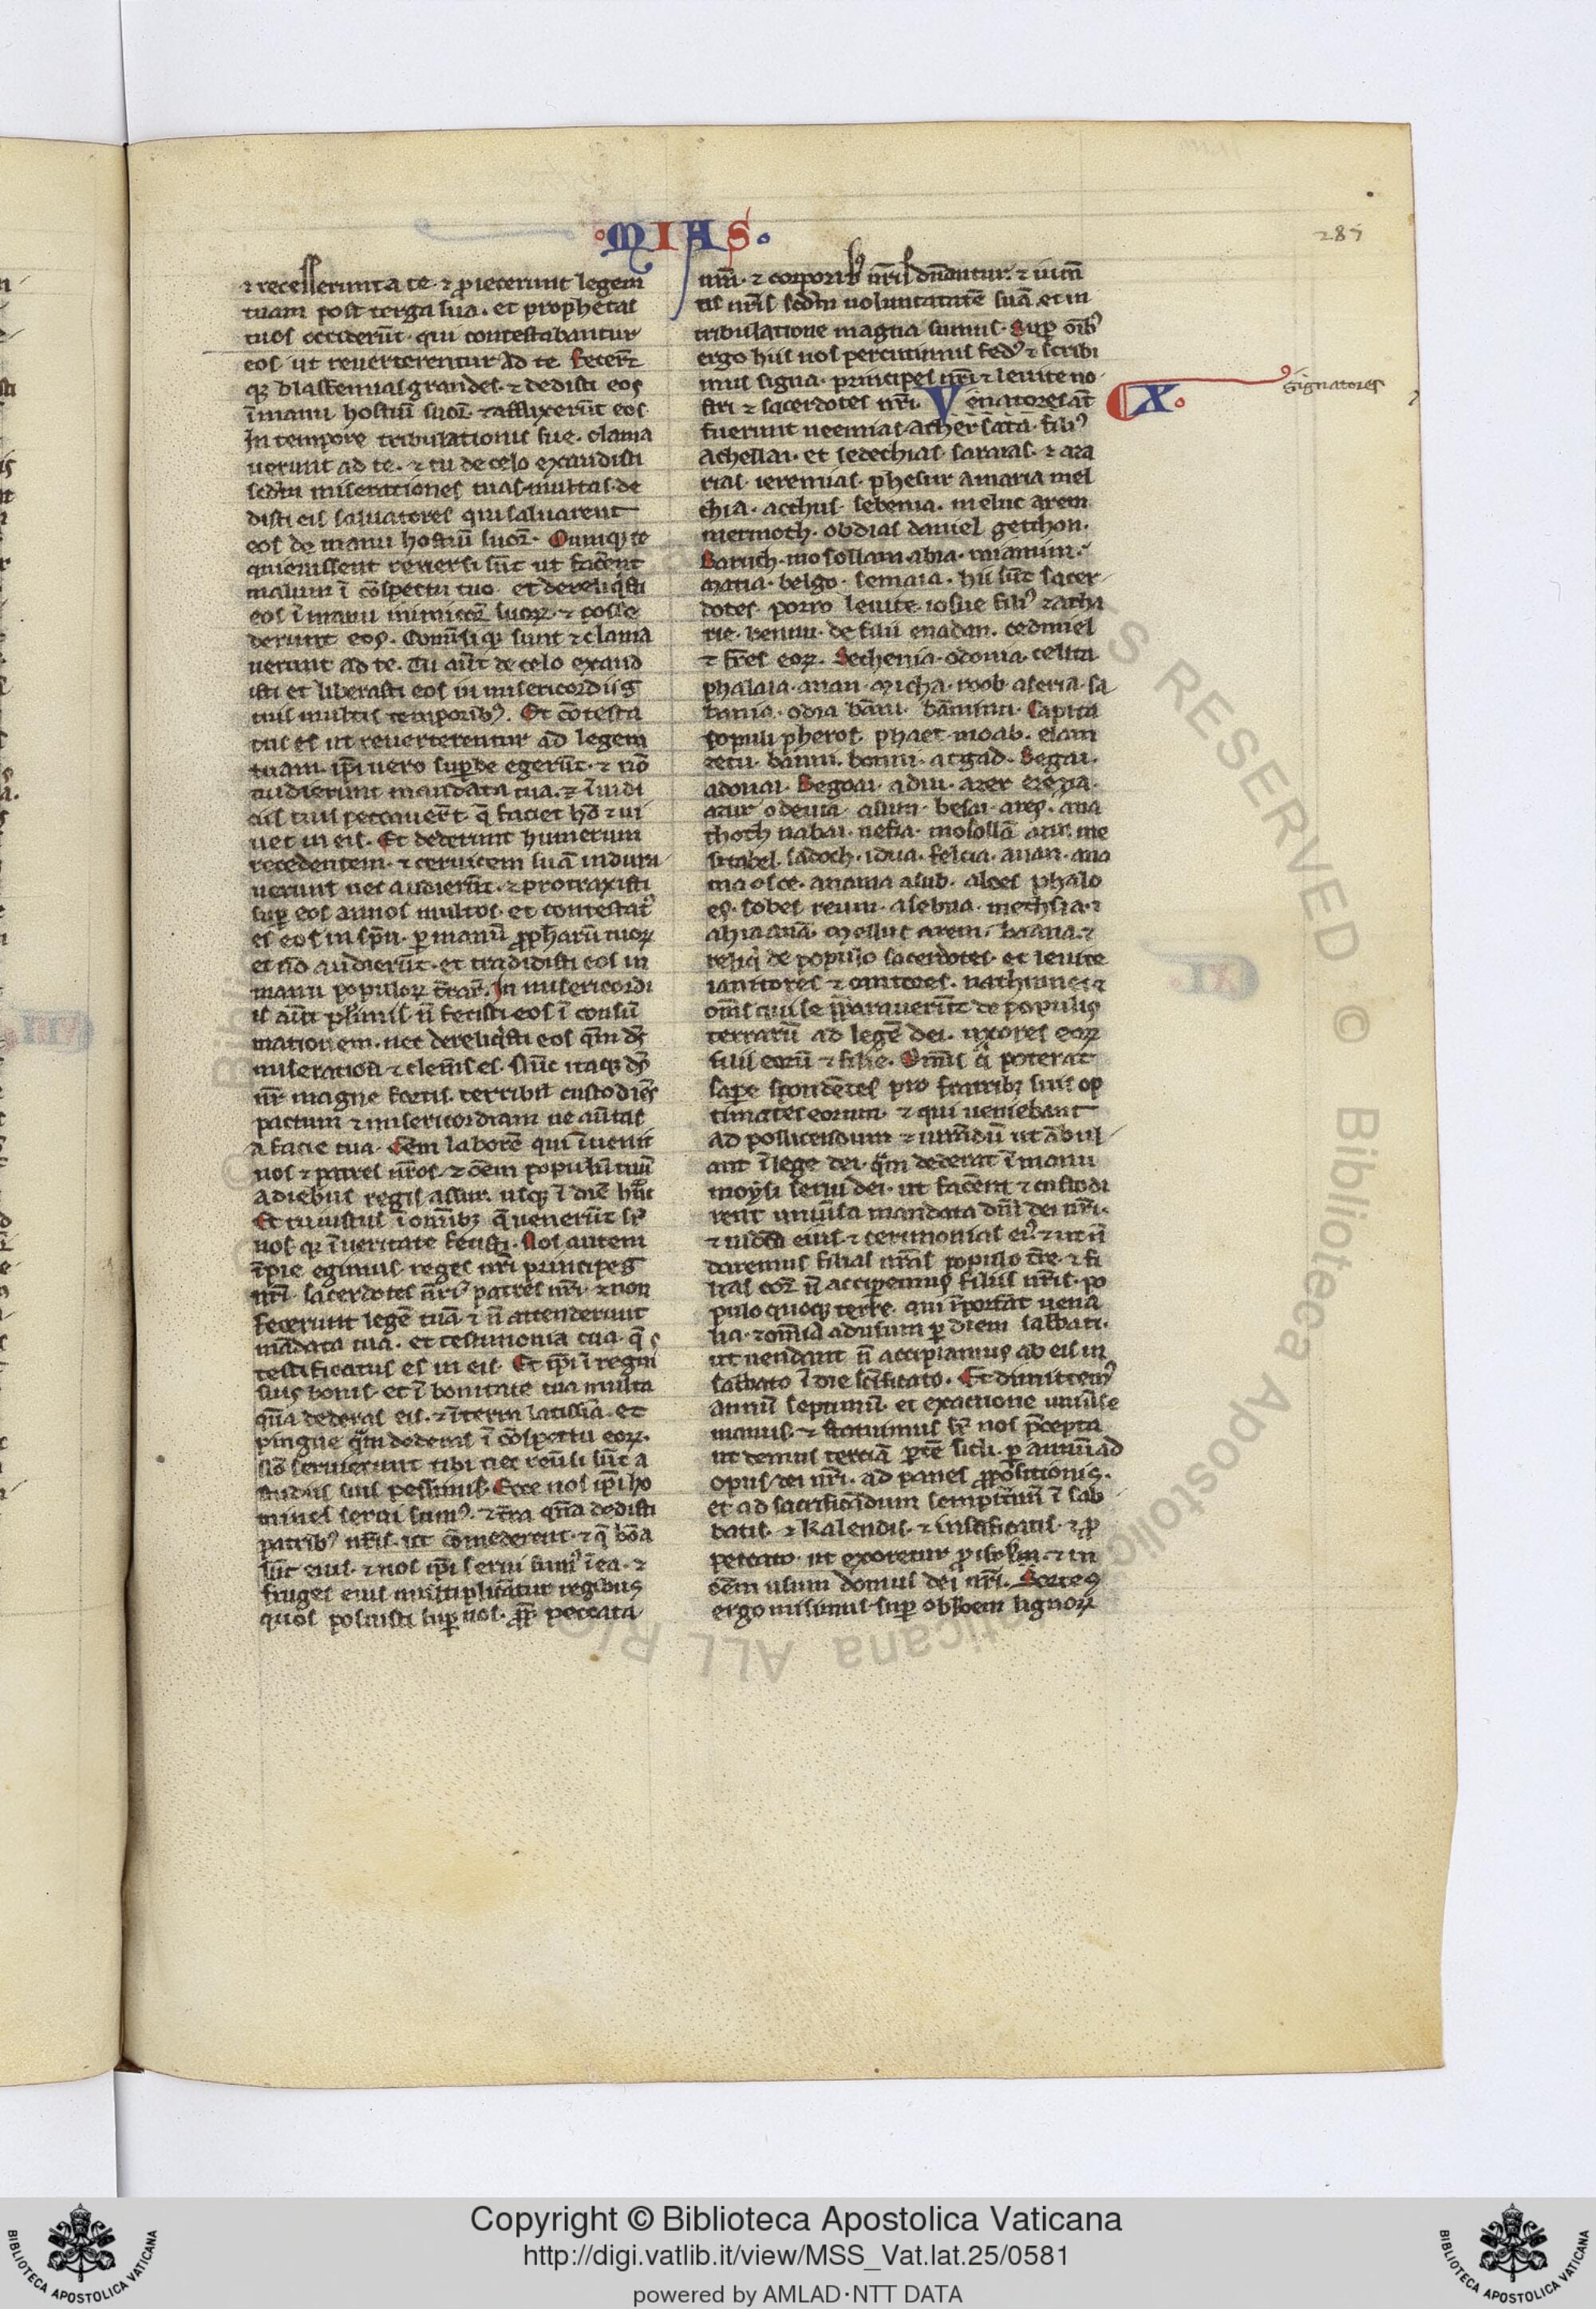 ·MIAS·
287
⁊ recesserunt a te ⁊ ꝓiecerunt legem
tuam post terga sua. et prophetas
tuos occiderūt· qui contestabantur
eos ut reuerterentur ad te. fecer̄t
qꝫ blasfemias grandes. ⁊ dedisti eos
ī manu hostiū suoꝝ. ⁊ afflixerūt eos
In tempore tribulationis sue. clama
uerunt ad te. ⁊ tu de celo exaudisti
scd̄m miserationes tuas multas de
disti eis saluatores qui saluarent
eos de manu hostiū suoꝝ. Cumqꝫ re
quieuissent reuersi sūt ut facent
malum ī ɔ̄spectu tuo et dereliq̇sti
eos ī manu inimicoꝝ suoꝝ. ⁊ posse
derunt eos. Conu̅siqꝫ sunt ⁊ clama
uerunt ad te. Tu aūt de celo exaud
isti et liberasti eos in misericordiis
tuis multis temporibꝰ. Et ɔ̄testa
tus es ut reuerterentur ad legem
tuam. ip̄i uero suꝑbe egerūt. ⁊ nō
audierunt mandata tua. ⁊ ī iudi
ciis tuis peccauer̄t. q̄ faciet hō ⁊ ui
uet in eis. Et dederunt humerum
recedentem. ⁊ ceruicem suā indura
uerunt nec audierūt. ⁊ protraxisti
suꝑ eos annos multos. et contestatꝰ
es eos in sp̄u. ꝑ manū ꝓpharū tuoꝝ
et nō audierūt. et tradidisti eos in
manu populoꝝ t̄rarꝝ. In misericordi
is aūt plimis n̄ fecisti eos ī consū
mationem. nec dereliq̇sti eos q̄m ds̄
miserationū ⁊ clemēs es. Nūc itaqꝫ ds̄
nr̄ magne fortis. terribil custodiēs
pactum ⁊ misericordiam ne au̅tas
a facie tua. Oēm laborē qui īuenit
nos ⁊ patres nr̄os. ⁊ oēm populū tuū
a diebus regis assur. usqꝫ ī diē hūc
Et tu iustus ī omībꝫ q̄ uenerūt sꝑ
nos qꝫ ī ueritate fecisti. Nos autem
īpie egimus. reges nr̄i principes
nr̄i. sacerdotes nr̄i. patres nr̄i. ⁊ non
fecerunt legē tuā ⁊ n̄ attenderunt
mādata tua. et testimonia tua. q̄
testificatus es in eis. Et ip̄i ī regnis
suis bonis. et ī bonitate tua multa
quā dederas eis. ⁊ ī terra latissīa. et
pingue quā dederas ī ɔ̄spectu eoꝝ.
nō seruierunt tibi nec reu̅si sūt a
studiis suis pessimis. Ecce nos ip̄i ho
die serui sumꝰ. ⁊ t̄ra quā dedisti
patribꝰ nr̄is. ut ɔ̄mederent. ⁊ q̄ bōa
sūt eius. ⁊ nos ip̄i serui sumꝰ ī ea. ⁊
fruges eius multiplicātur regibus
quos posuisti suꝑ nos. ꝓpt̄ peccata
nr̄a. ⁊ corporibꝰ nr̄is dn̄antur. ⁊ iumē
tis nr̄is scd̄m uoluntatē suā. et in
tribulatione magna sumus. Suꝑ oībꝰ
ergo hiis nos percutimus fedꝰ ⁊ scribi
mus. signa. principes nr̄i ⁊ leuite no
stri ⁊ sacerdotes nr̄i. Venatores āt
X.
signatores
fuerunt neemias. athersata. filiꝰ
achellai. et sedechias. saraias. ⁊ aza
rias. ieremias. phesur amaria mel
chia. acchus. sebenia. meluc arem
mermoth. obdias daniel getthon.
Baruch. mosollam. abia. miamim.
mazia. belgo. semaia. hii sūt sacer
dotes. porro leuite. iosue filiꝰ zacha
rie. bennu. de filii enadan. cedmiel
⁊ fr̄es eoꝝ. Sechenia. odonia. celita
phalaia. anan. micha. roob. aseria. sa
bania. odia. bāni. bāninu. Capita
populi. pheros. phaet moab. elam
zetu. banni. bonni. azgad. Begai.
adonai. Begoai. adin. azer ezezia.
azur odenia. asum. besai. ares. ana
thoth nabai. nefia. mosollā azir. me
sizabel. sadoch. idua. feltia. anan. ana
nia osee. anania asub. aloes phalo
es. sobet reum. asebna. methsia. ⁊
ahia anā. mellut arem. baana. ⁊
reliq̇ de populo sacerdotes. et leuite
ianitores ⁊ cantores. nathinnei ⁊
oms qui se seꝑarauerūt de populis
terrarū ad legē dei. uxores eoꝝ
filii eorū ⁊ filie. Omīs q̇ poterat
sape spondētes pro fratribꝫ suis op
timates eorum. ⁊ qui ueniebant
ad pollicendum ⁊ iurādū ut ābul
ant ī lege dei. quā dederat ī manu
moysi serui dei. ut facent ⁊ custodi
rent uniu̅sa mandata dn̄i dei nr̄i.
⁊ iudicia eius. ⁊ cerimonias eiꝰ. ⁊ ut n̄
daremus filias nr̄as populo t̄re. ⁊ fi
lias eoꝝ n̄ acciperemus filiis nr̄is. po
puli quoqꝫ terre. qui īportāt uena
lia. ⁊ omīa ad usum ꝑ diem sabbati.
ut uendant n̄ accipiamus ab eis in
sabbato ī die sc̄ificato. Et dimittemꝰ
annū septimū. et exactione uniu̅se
manus. ⁊ statuimus sꝑ nos p̄cepta
ut demus terciā ꝑtē sicli. ꝑ annū ad
opus dei nr̄i. ad panes ꝓpositionis.
et ad sacrificādum sempit̄nū ī sab
batis. ⁊ kalendis. ⁊ in sc̄ificatis. ⁊ ꝓ
peccato. ut exoretur ꝓ isrl̄. ⁊ in
oēm usum domus dei nr̄i. Sortes
ergo misimus. suꝑ oblacōem lignoꝝ
Copyright © Biblioteca Apostolica Vaticana
http://digi.vatlib.it/view/MSS_Vat.lat.25/0581
powered by AMLAD·NTT DATA
BIBLIOTECA APOSTOLICA VATICANA
BIBLIOTECA APOSTOLICA VATICANA